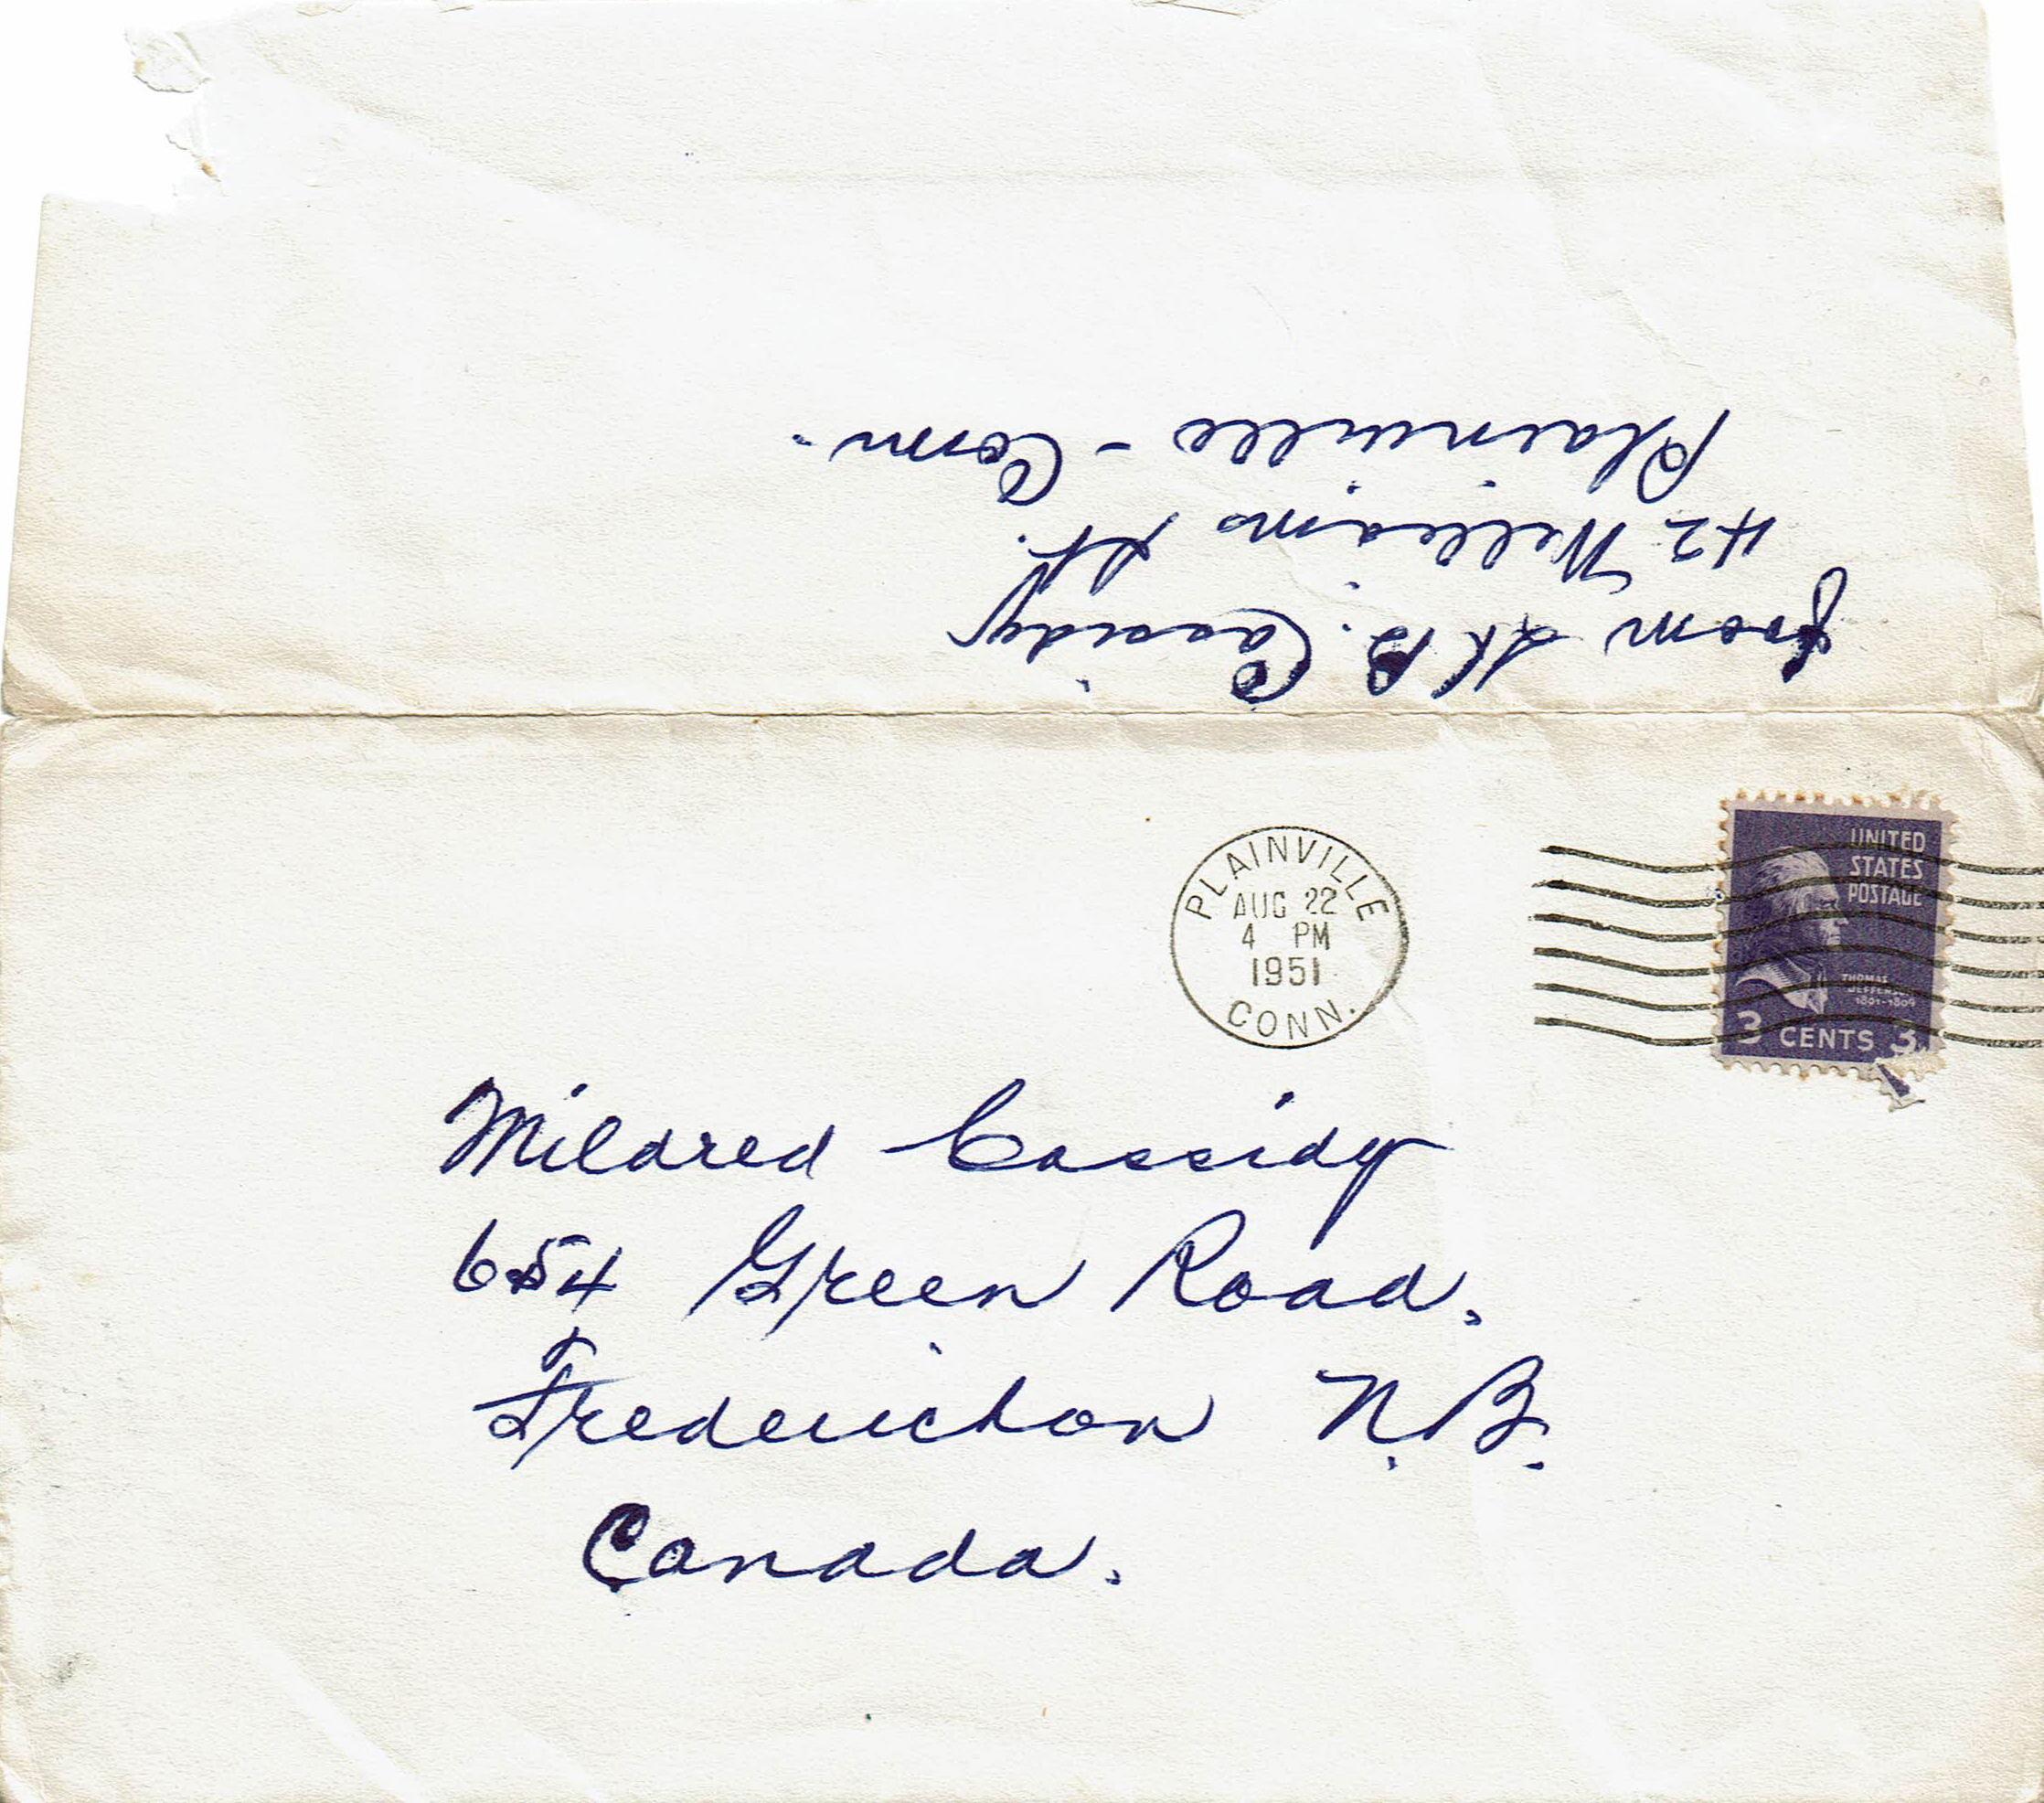 from H B. Cassidy
42 Williams St.
Plainville - Conn.
PLAINVILLE
AUG 22
4 PM
1951
CONN.
UNITED
STATES
POSTAGE
THOMAS
JEFFERSON
1801-1809
3 CENTS 3
Mildred Cassidy
654 Green Road.
Fredericton N.B.
Canada.